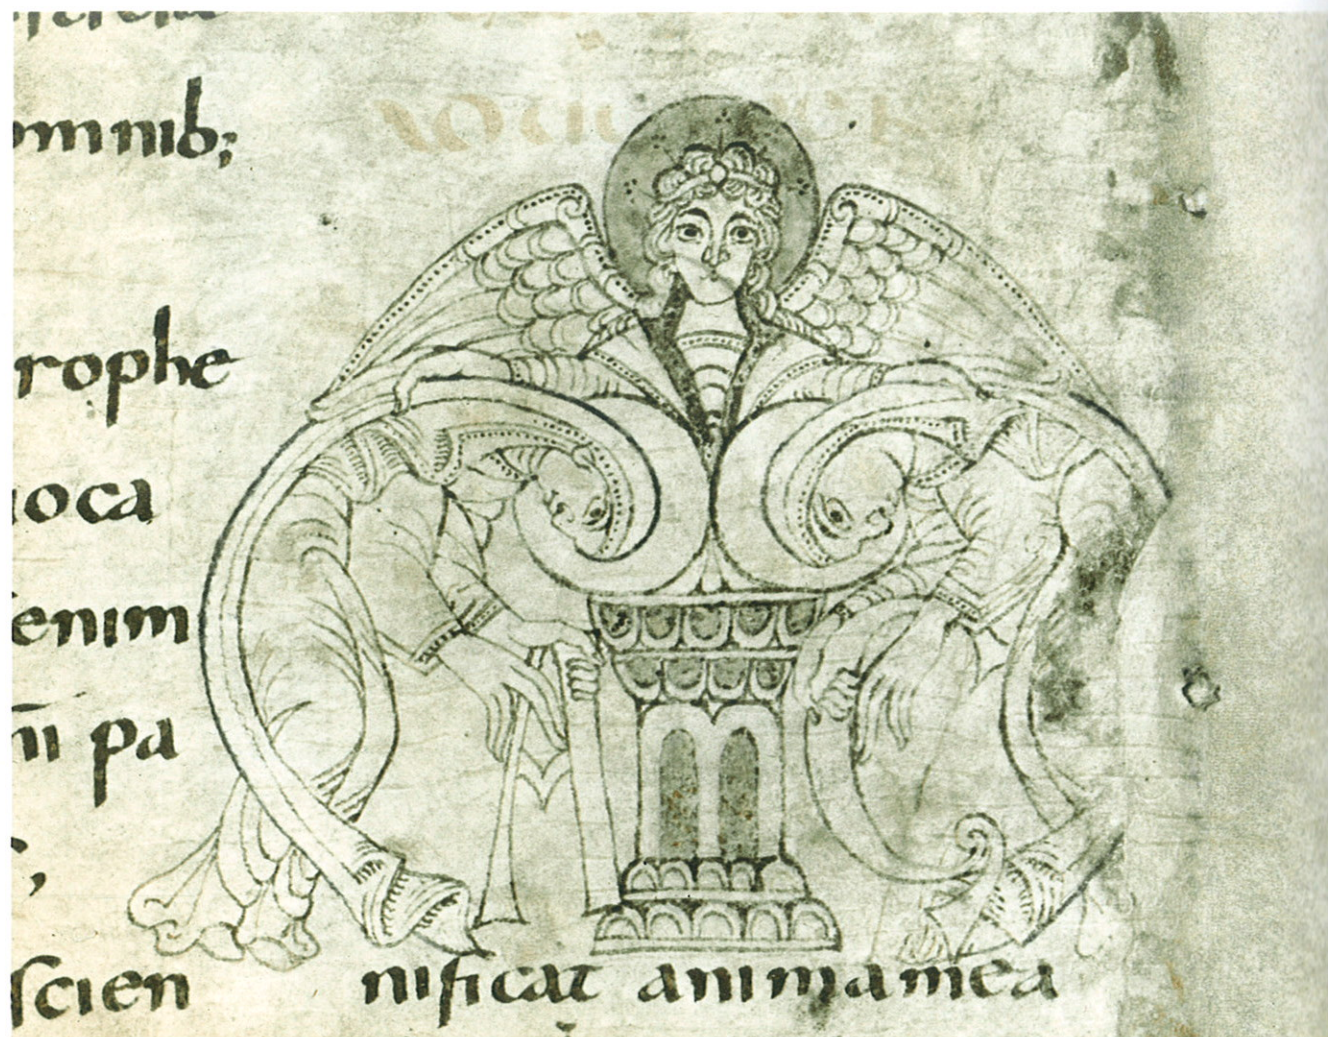 omnib;
rophe
ioca
enim
pa
scien
nificat anima mea